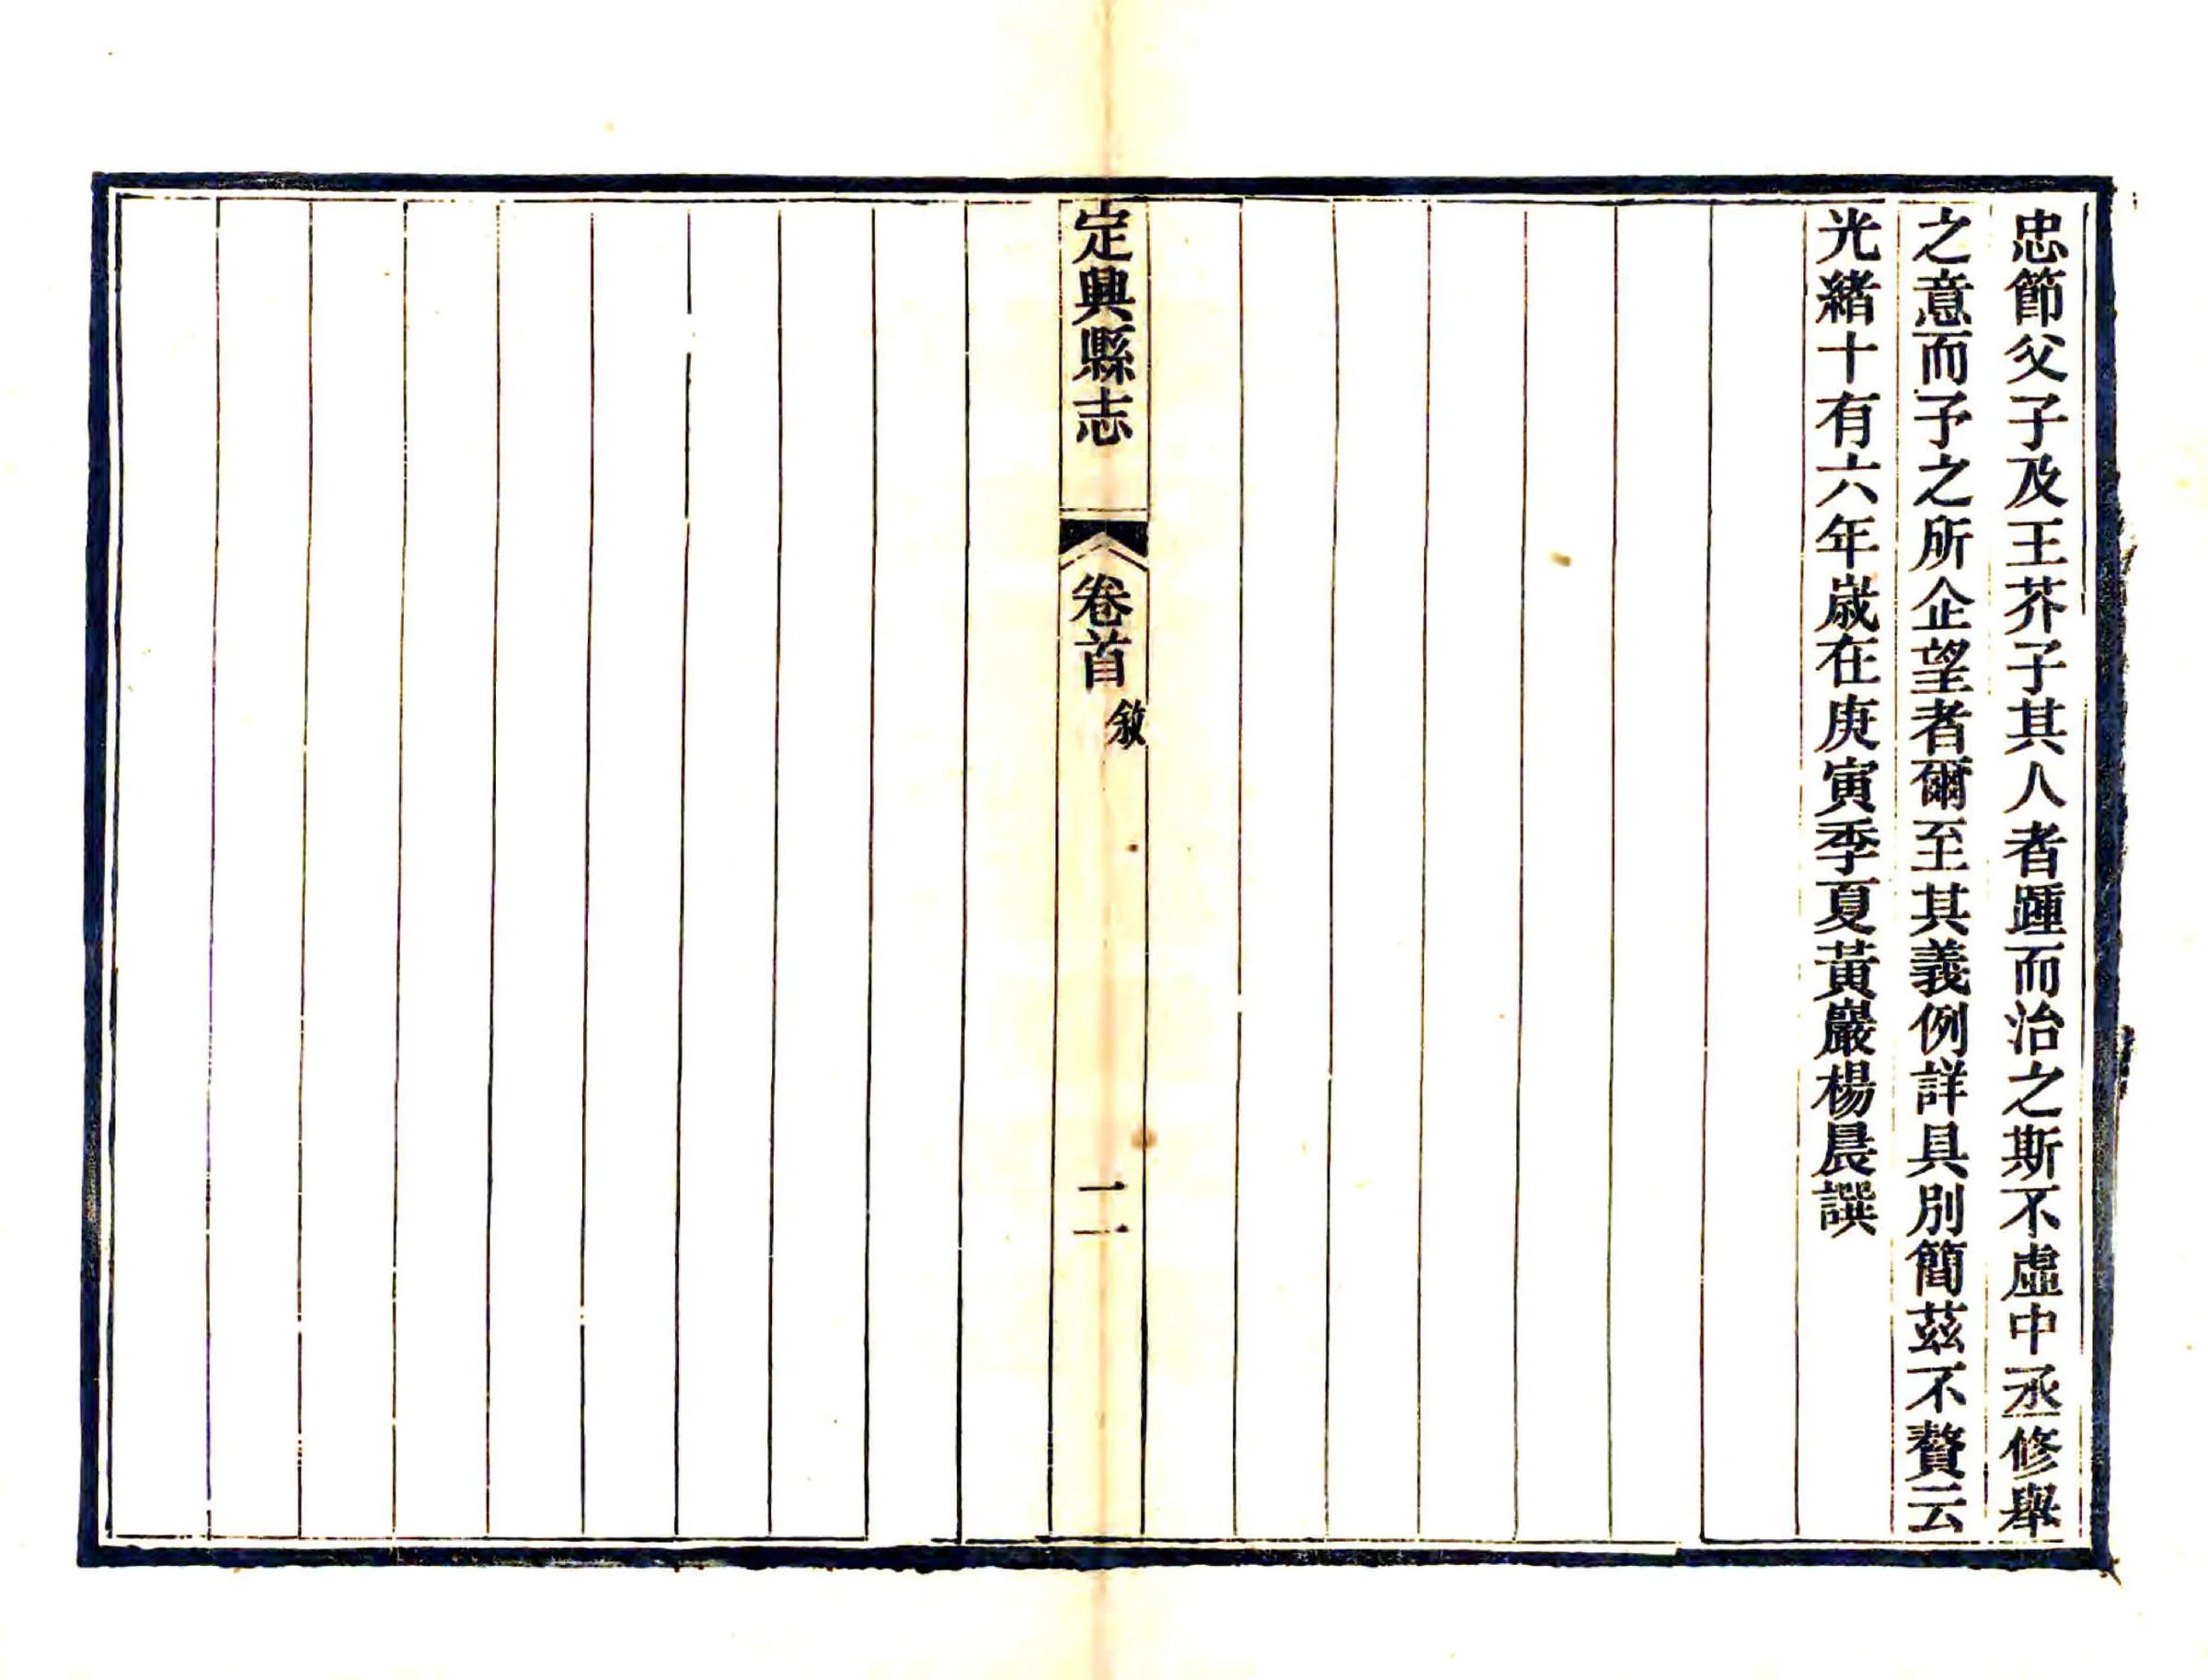 忠節父子及王芥子其人者踵而治之斯不虛中丞修舉
之意而予之所企望者爾至其義例詳具別簡茲不贅云
光緒十有六年歲在庚寅季夏黃巖楊晨譔
定興縣志
卷首
敘
二